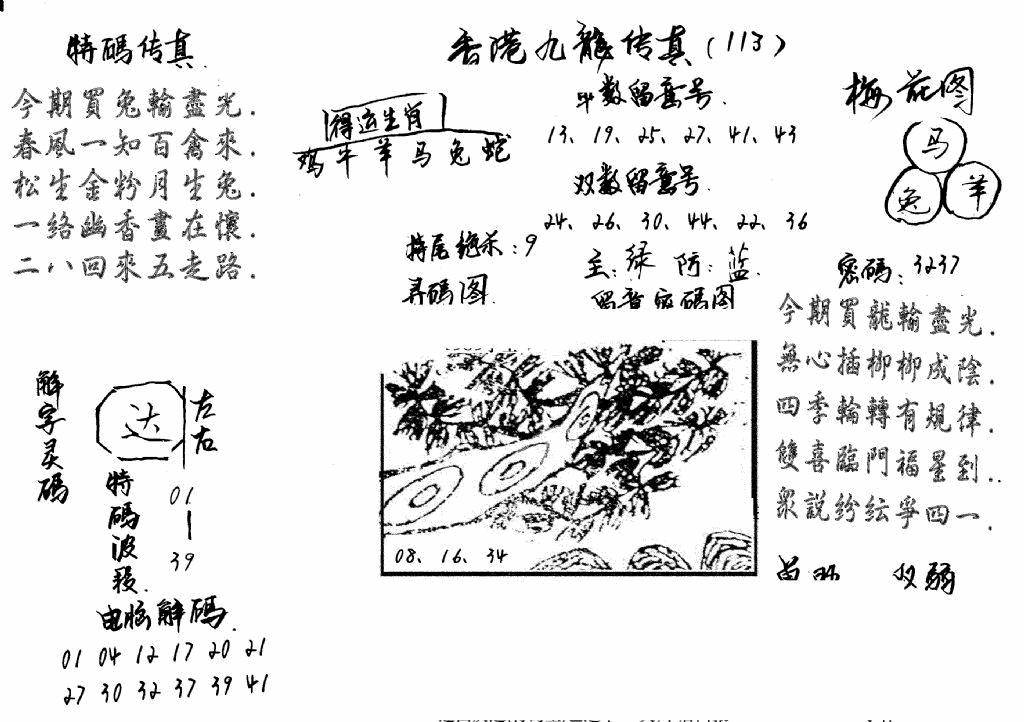 特碼传真
今期買兔輸盡光.
春風一知百禽來.
松生金粉月生兔.
一络幽香畫在懷.
二八回來五走路.
香港九龍传真(113)
得运生肖
鸡牛羊马兔蛇
单数留意号.
13、19、25、27、41、43
双数留意号
24、26、30、44、22、36
特尾绝杀:9
主:绿 防:蓝.
寻碼图
留意密碼图
梅花图
马
兔
羊
密碼:3237
今期買龍輸盡光.
無心插柳柳成陰.
四季輪轉有規律.
雙喜臨門福星到..
眾說紛紜爭四一.
08、16、34
解字灵碼
达
左右
特碼波段.
01
39
电脑解碼.
01 04 12 17 20 21
27 30 32 37 39 41